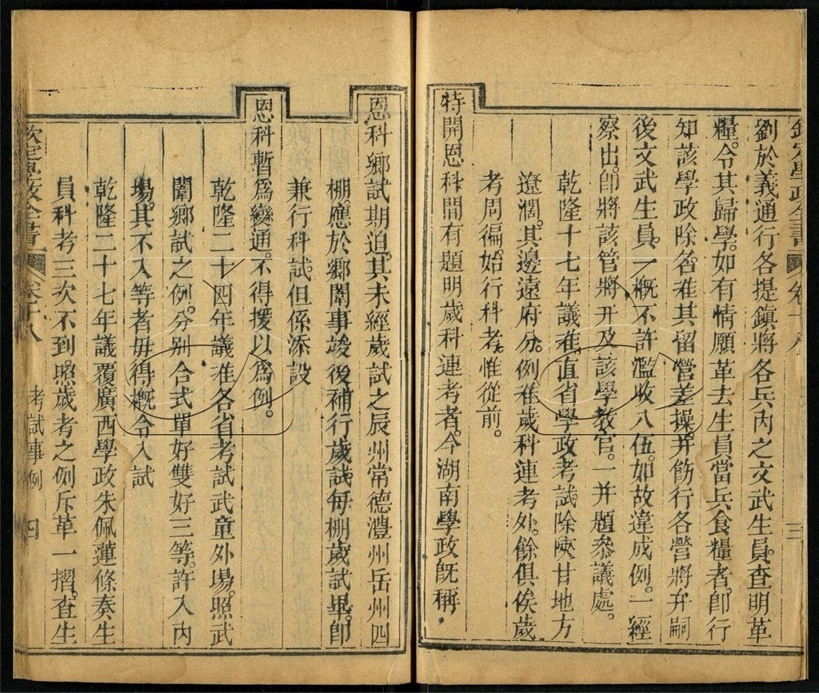 欽定學政全書 卷十八 三
劉於義通行各提鎮將各兵丙之文武生員查明革
糧令其歸學如有情願革去生員當兵食糧者即行
知該學政除名准其留營差操并飭行各營將弁嗣
後文武生員一概不許濫收入伍如故違成例一經
察出即將該管將弁及該學教官一并題叅議處
乾隆十七年議准直省學政考試除陝甘地方
遼濶其邊遠府分例准歲科連考外餘俱俟歲
考周徧始行科考惟從前
特開恩科間有題明歲科連考者今湖南學政既稱
恩科鄉試期迫其未經歲試之辰州常德澧州岳州四
棚應於鄉闈事竣後補行歲試每棚歲試畢即
兼行科試但係添設
恩科暫爲變通不得援以爲例
乾隆二十四年議准各省考試武童外場照武
闈鄉試之例分别合式單好雙好三等許入内
場其不入等者毋得概令入試
乾隆二十七年議覆廣西學政朱佩蓮條奏生
員科考三次不到照歲考之例斥革一摺查生
欽定學政全書 卷十八 考試事例 四